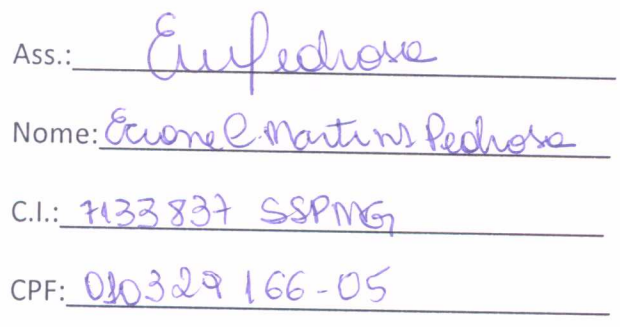 Ass.: EmPedrosa
Nome: Ecione C. Martins Pedrosa
C.I.: 7133837 SSPMG
CPF: 010329166-05